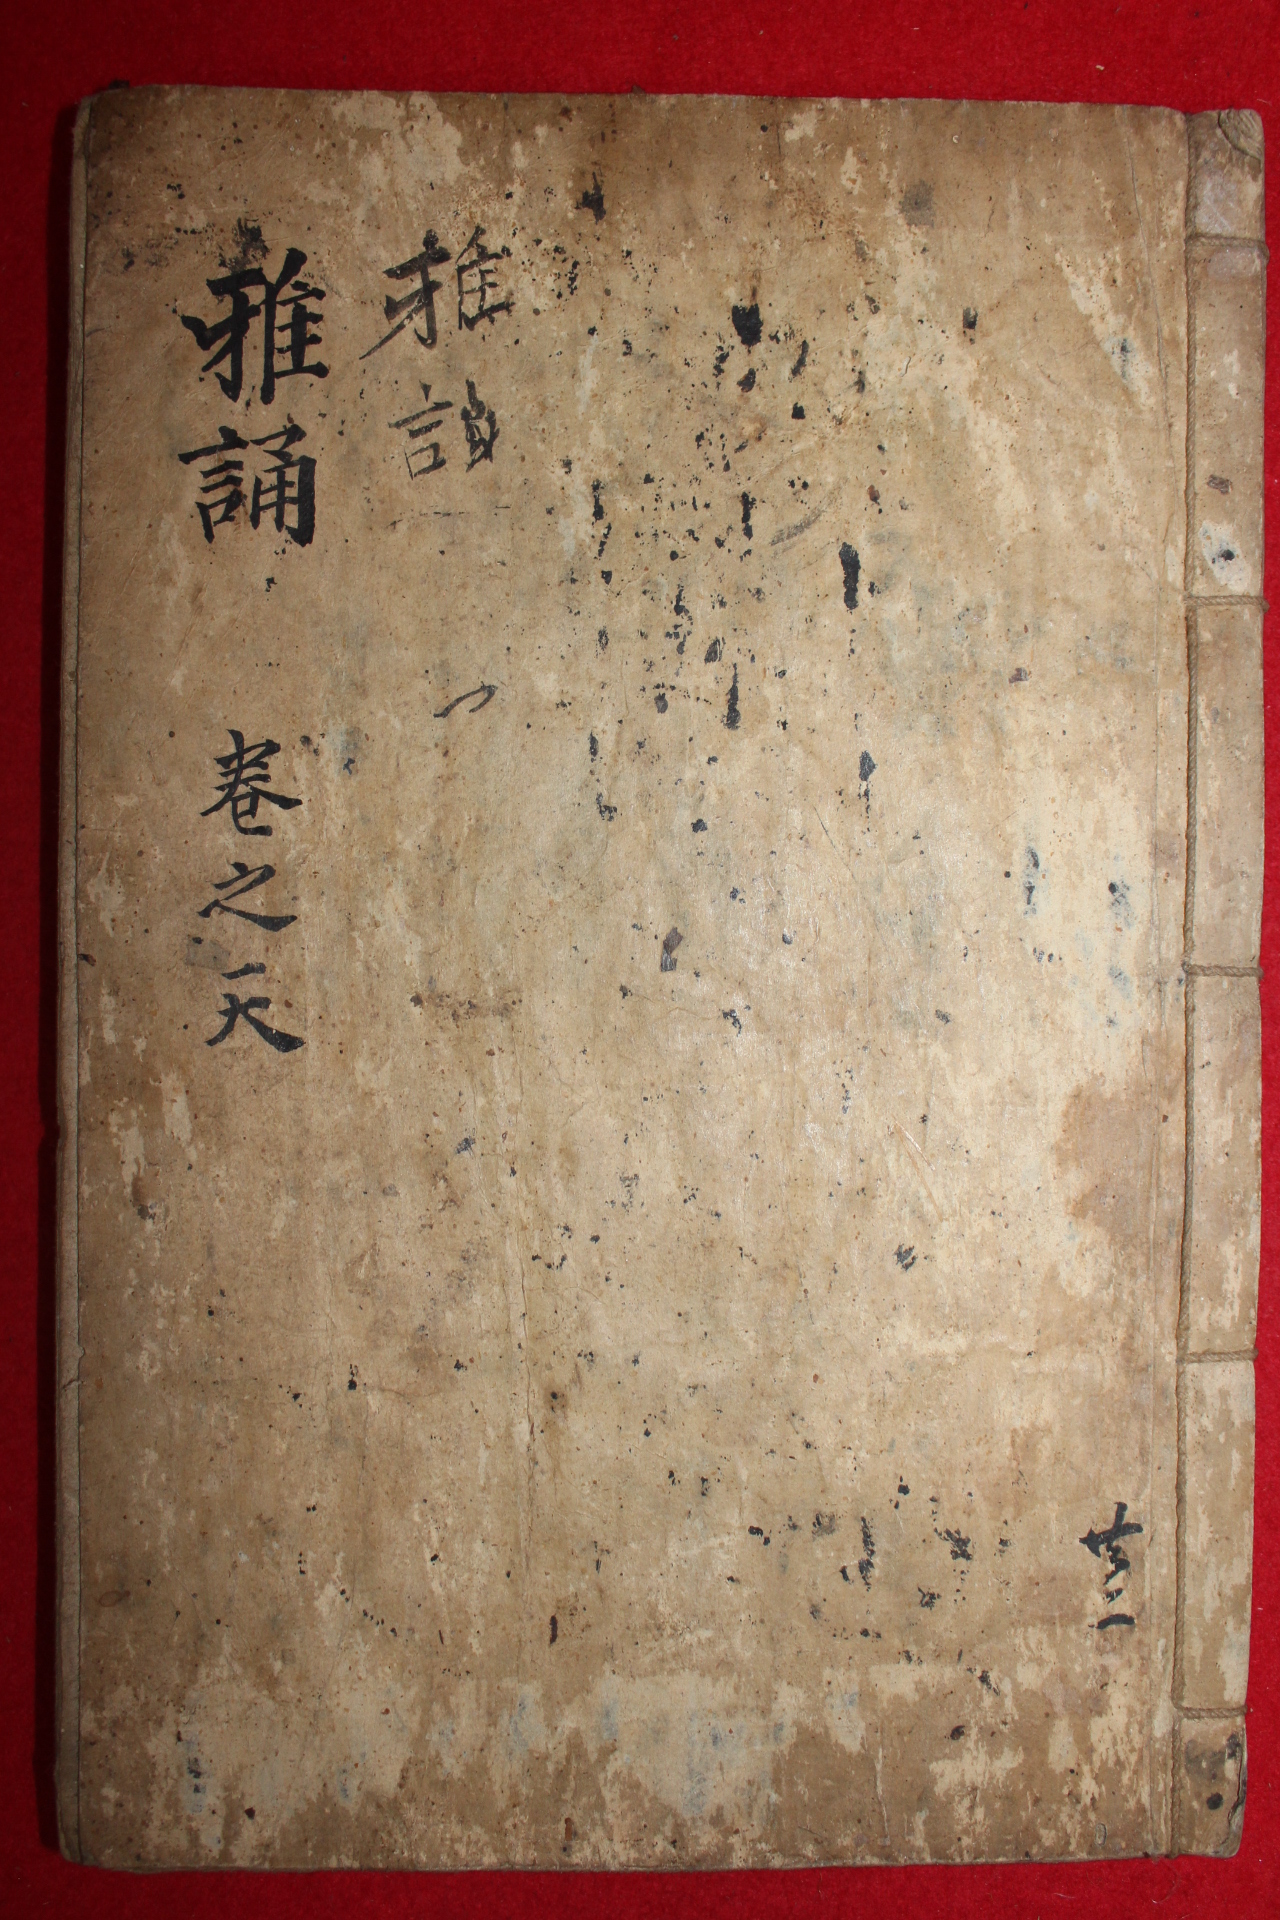 雅誦
雅誦 卷之天